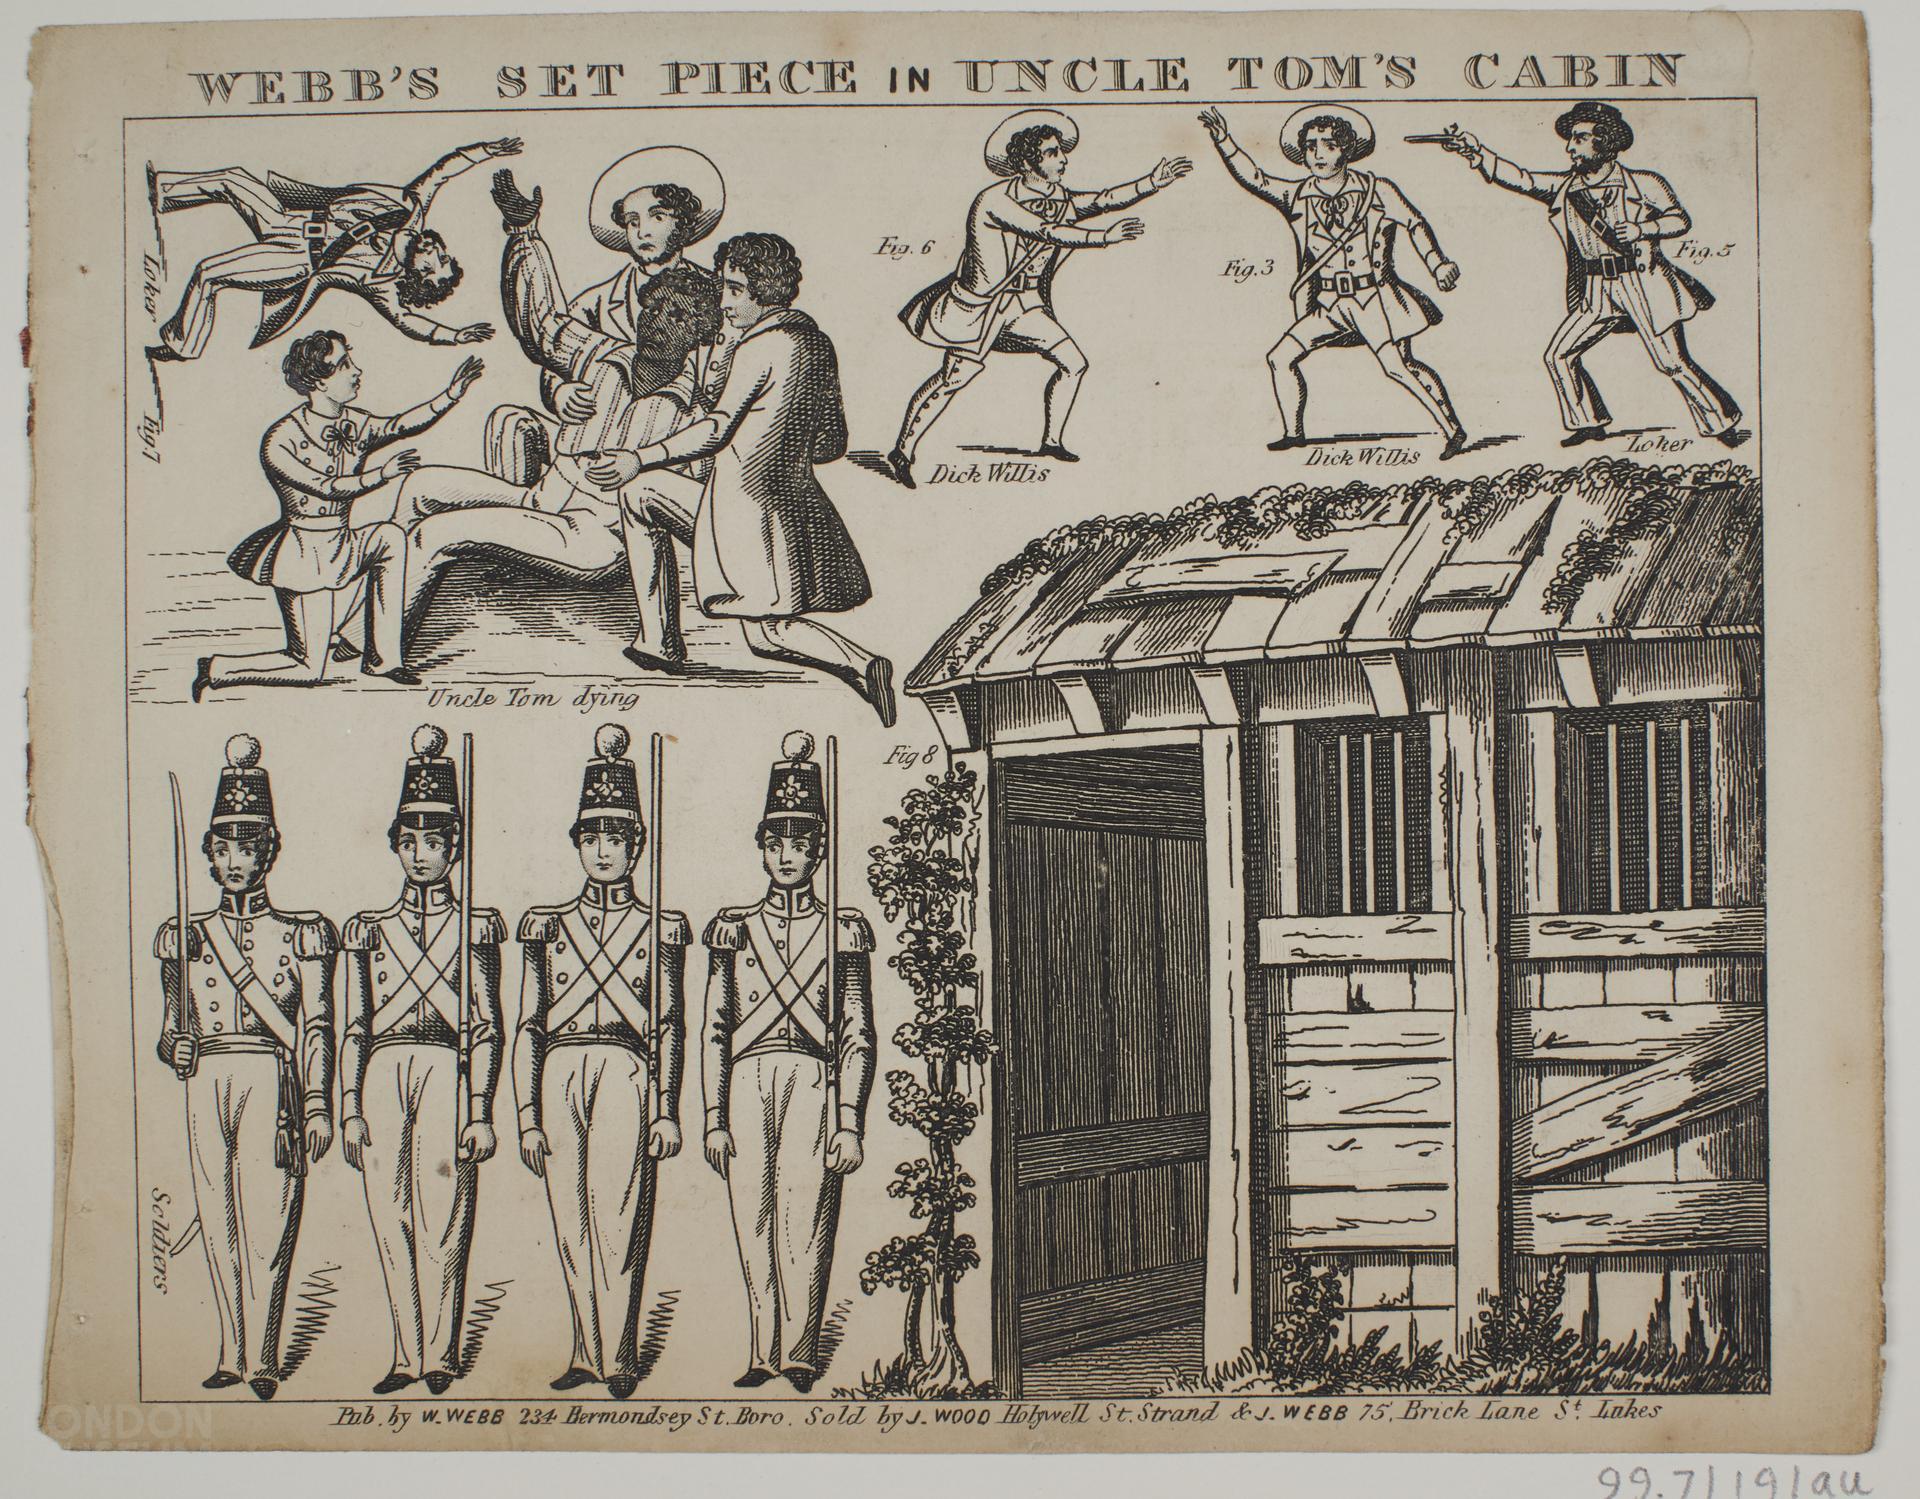 WEBB'S SET PIECE IN UNCLE TOM'S CABIN
Loker
Fig. 7
Fig. 6
Dick Willis
Fig. 3
Dick Willis
Fig. 5
Loker
Uncle Tom dying
Fig 8
Soldiers
Pub. by W. WEBB 234 Bermondsey St. Boro. Sold by J. WOOD Holywell St. Strand & J. WEBB 75, Brick Lane St. Lukes
ONDON
99.7/19/au